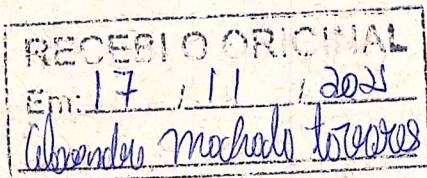 RECEBI O ORIGINAL
Em: 17 / 11 / 2021
Alexandre Machado Tavares